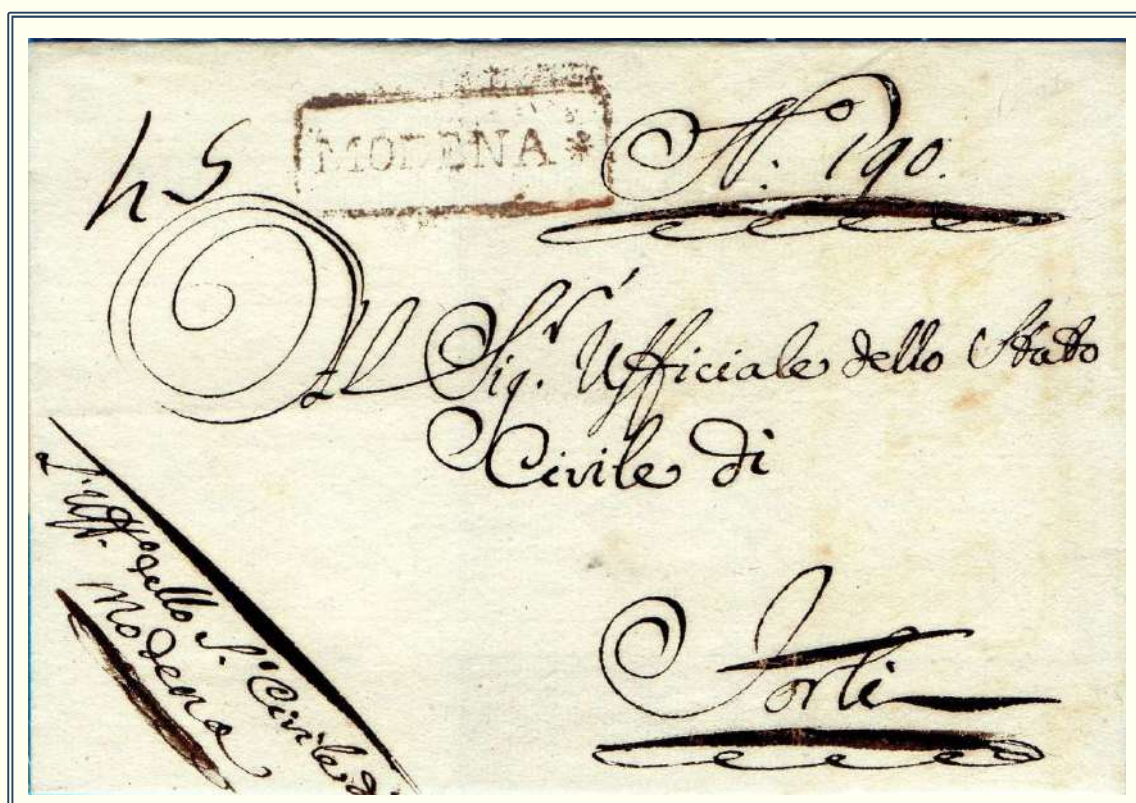 MODENA *
N. 190.
Al Sig.r Ufficiale dello Stato
Civile di
Forlì
L'Uff.o dello S.to Civile di
Modena